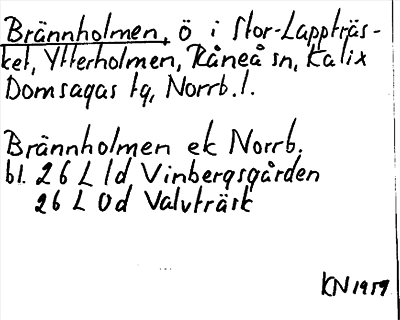 Brännholmen, ö i Stor-Lappträs-
ket, Ytterholmen, Råneå sn, Kalix
Domsagas tg, Norrb.l.
Brännholmen ek Norrb.
bl. 26 L 1d Vinbergsgården
26 L 0d Valvträsk
KN 1959